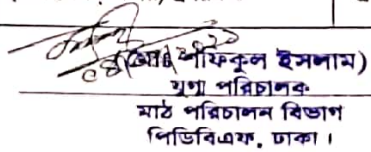 (মোঃ শফিকুল ইসলাম)
যুগ্ম পরিচালক
মাঠ পরিচালন বিভাগ
পিডিবিএফ, ঢাকা।